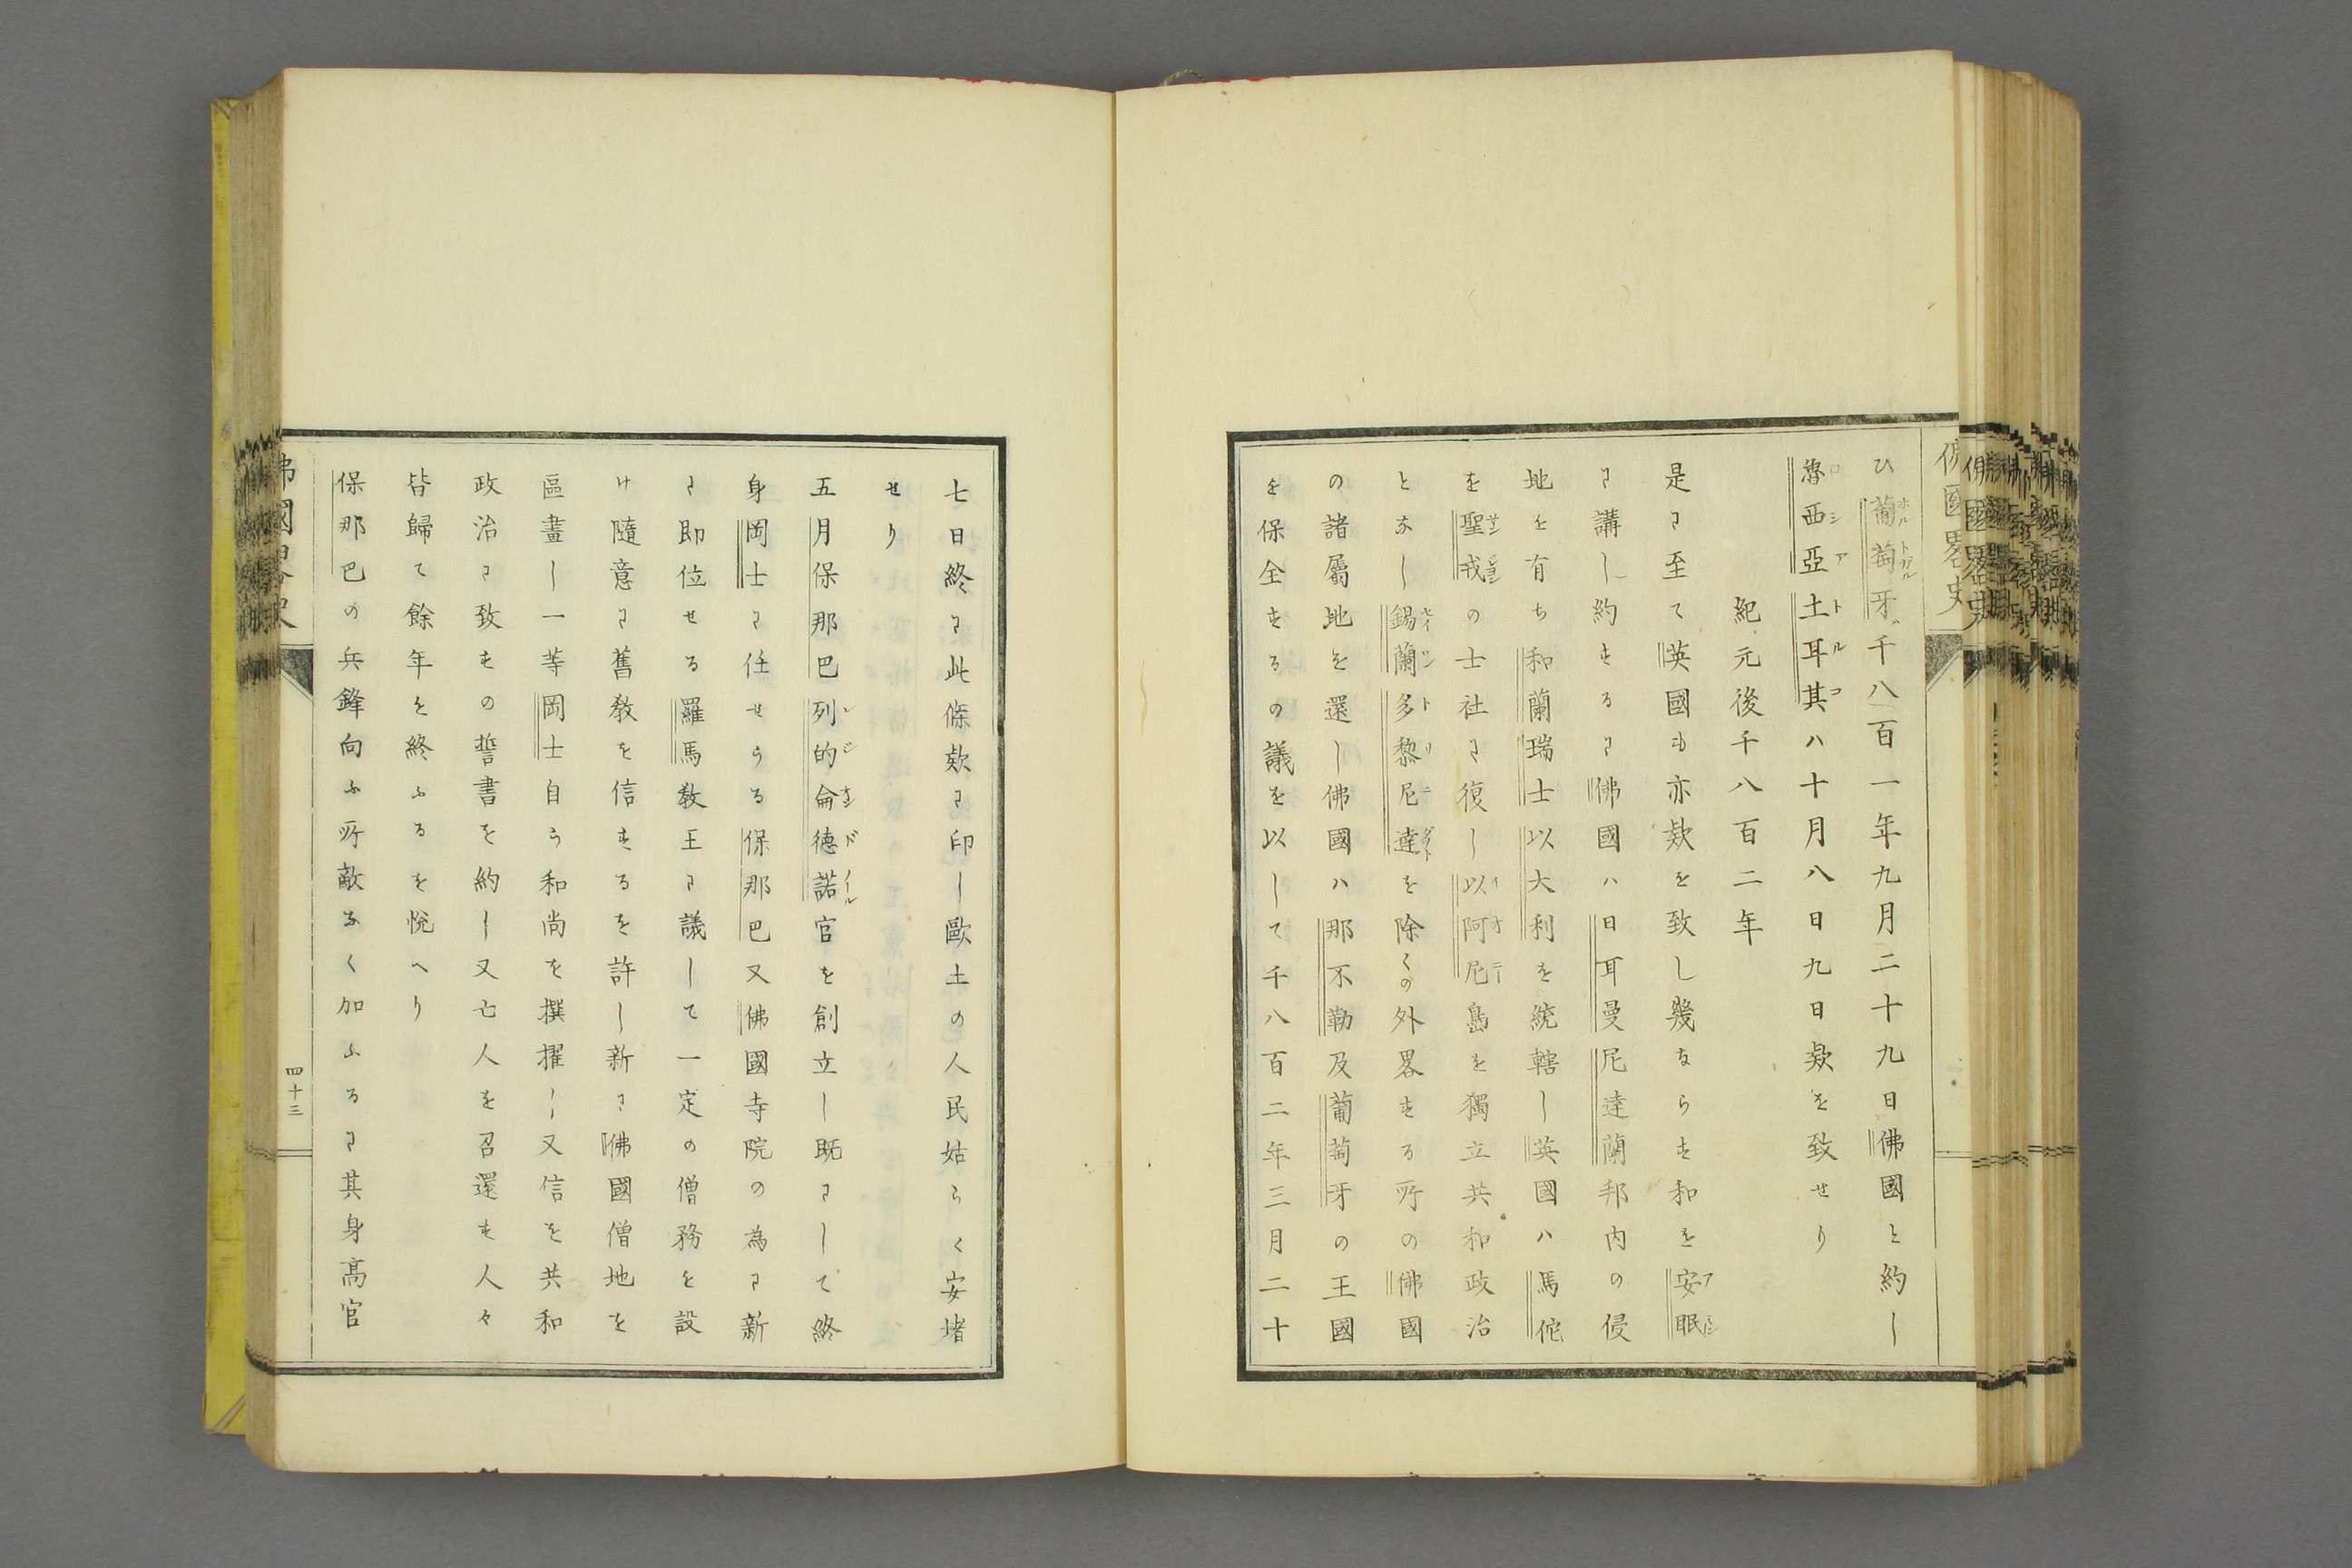 佛國畧史
ひ葡萄牙千八百一年九月二十九日佛國と約し
魯西亞土耳其ハ十月八日九日欵を致せり
紀元後千八百二年
是に至て英國も亦欵を致し幾ならす和を安眠
に講し約するに佛國ハ日耳曼尼達蘭邦内の侵
地を有ち和蘭瑞士以大利を統轄し英國ハ馬侘
を聖戎の士社に復し以阿尼島を獨立共和政治
となし錫蘭多黎尼達を除くの外畧する所の佛國
の諸屬地を還し佛國ハ那不勒及葡萄牙の王國
を保全するの議を以して千八百二年三月二十
七日終に此條欵に印し歐土の人民姑らく安堵
せり
五月保那巴列的侖德諾官を創立し既にして終
身岡士に任せらる保那巴又佛國寺院の為に新
に即位せる羅馬教王に議して一定の僧務を設
け隨意に舊教を信するを許し新に佛國僧地を
區畫し一等岡士自ら和尚を撰擢し又信を共和
政治に致すの誓書を約し又亡人を召還す人々
皆歸て餘年を終ふるを悅へり
保那巴の兵鋒向ふ所敵なく加ふるに其身髙官
佛國畧史
四十三